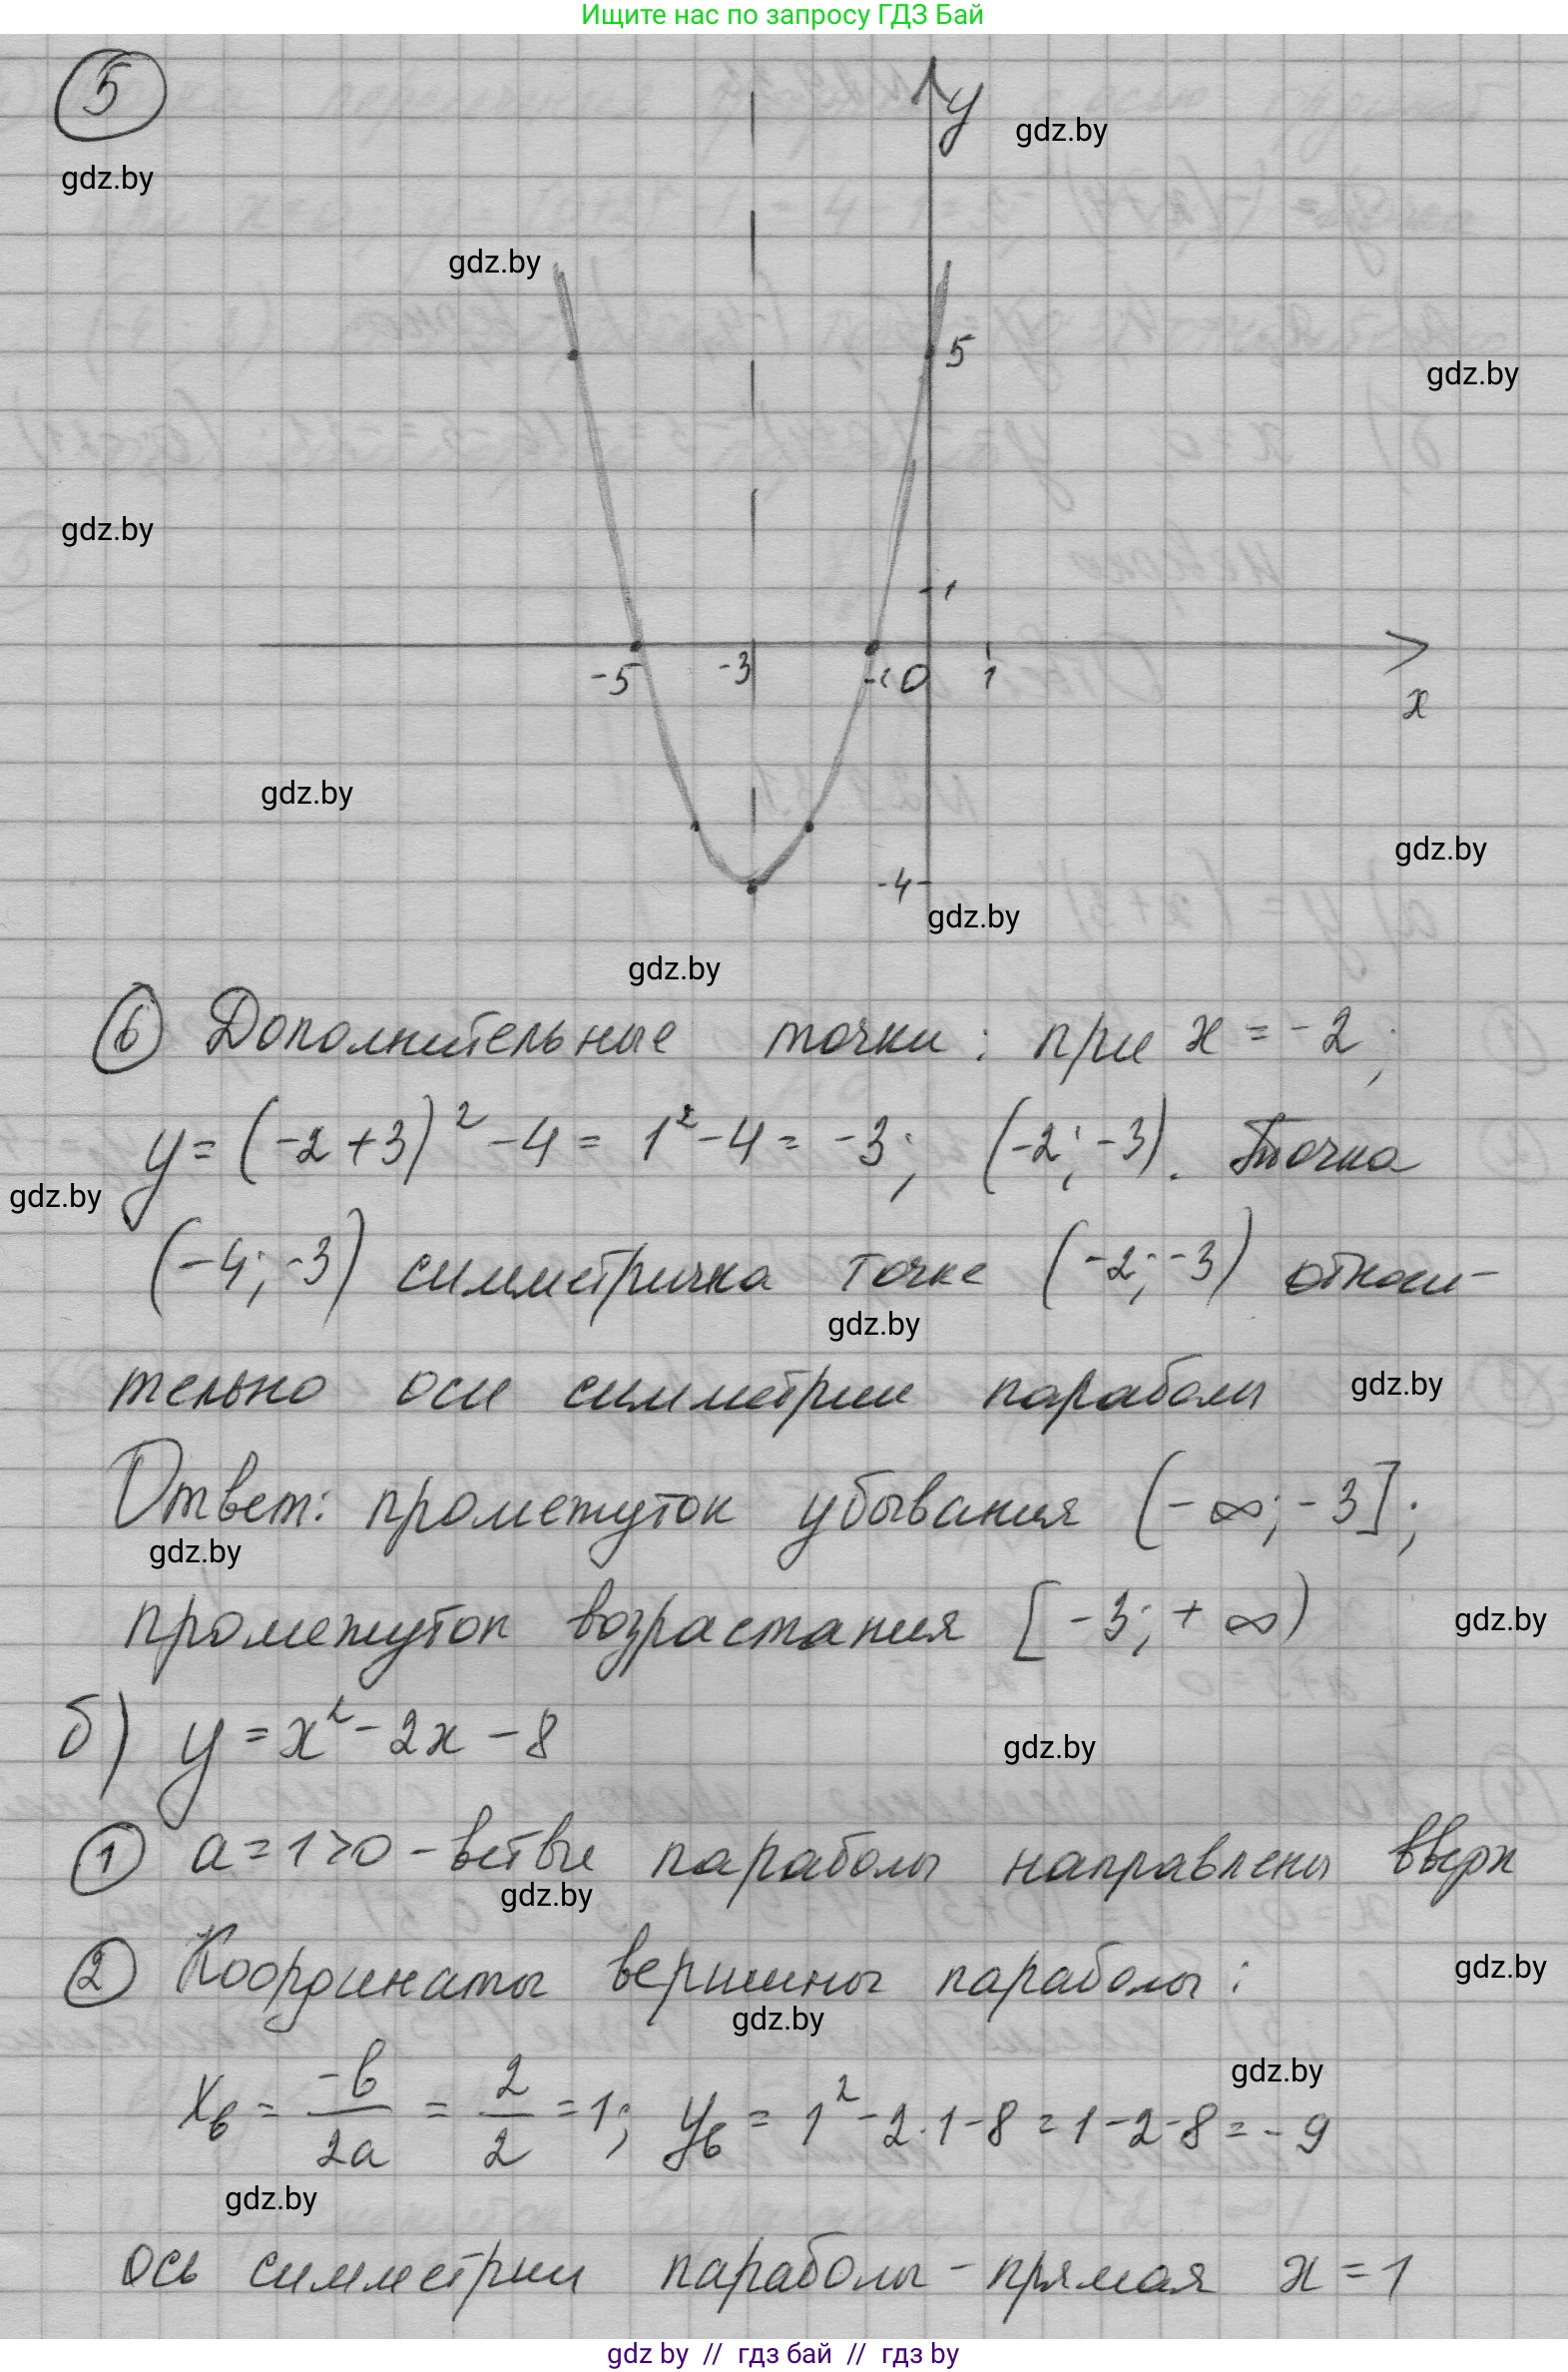 Ищите нас по запросу ГДЗ Бай
5
y
gdz.by
gdz.by
gdz.by
5
gdz.by
gdz.by
1
-5 -3 -1 0 1
x
gdz.by
gdz.by
-4
gdz.by
gdz.by
6 Дополнительные точки: при x = -2;
y = (-2+3)² - 4 = 1² - 4 = -3; (-2; -3). Точка
gdz.by
(-4; -3) симметрична точке (-2; -3) относи-
gdz.by
тельно оси симметрии параболы
gdz.by
Ответ: промежуток убывания (-∞; -3];
gdz.by
промежуток возрастания [-3; +∞)
gdz.by
б) y = x² - 2x - 8
gdz.by
1 a = 1 > 0 - ветви параболы направлены вверх
gdz.by
2 Координаты вершины параболы:
gdz.by
gdz.by
gdz.by
xв = -b/2a = 2/2 = 1; yв = 1² - 2·1 - 8 = 1 - 2 - 8 = -9
gdz.by
ось симметрии параболы - прямая x = 1
gdz by // гдз бай // гдз by